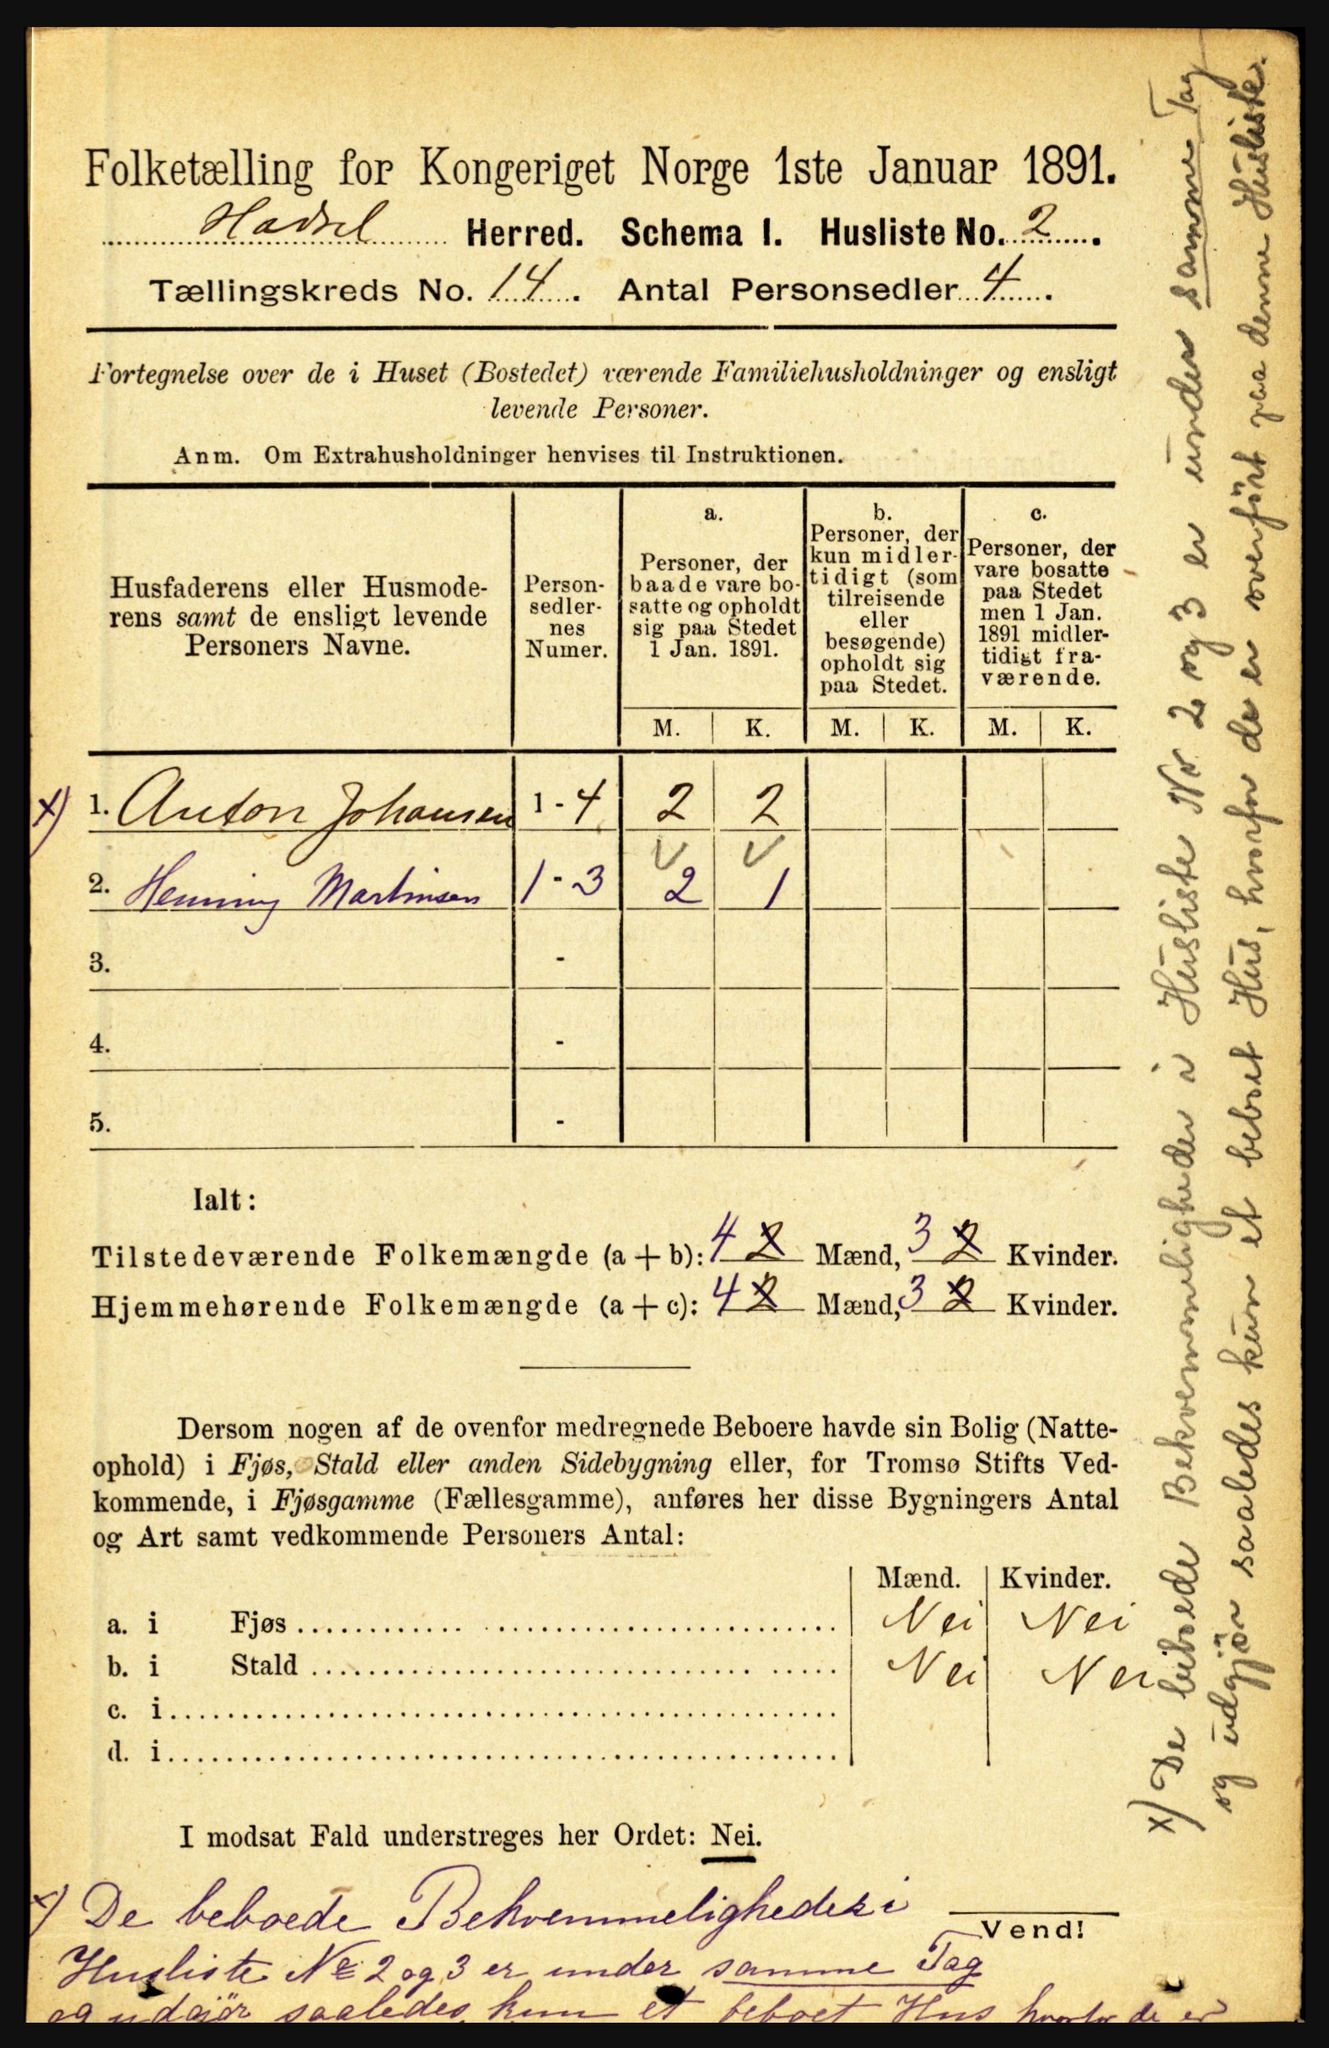 Folketælling for Kongeriget Norge 1ste Januar 1891.
Hadsel Herred. Schema I. Husliste No. 2.
Tællingskreds No. 14. Antal Personsedler 4.
Fortegnelse over de i Huset (Bostedet) værende Familiehusholdninger og ensligt
levende Personer.
Anm. Om Extrahusholdninger henvises til Instruktionen.
Husfaderens eller Husmode-
rens samt de ensligt levende
Personers Navne.
Person-
sedler-
nes
Numer.
a.
Personer, der
baade vare bo-
satte og opholdt
sig paa Stedet
1 Jan. 1891.
b.
Personer, der
kun midler-
tidigt (som
tilreisende
eller
besøgende)
opholdt sig
paa Stedet.
c.
Personer, der
vare bosatte
paa Stedet
men 1 Jan.
1891 midler-
tidigt fra-
værende.
M. K. M. K. M. K.
x) 1. Anton Johansen 1 - 4 2 2
2. Henning Martinsen 1 - 3 2 1
3. -
4. -
5. -
Ialt:
Tilstedeværende Folkemængde (a + b): 4 2 Mænd, 3 2 Kvinder.
Hjemmehørende Folkemængde (a + c): 4 2 Mænd, 3 2 Kvinder.
Dersom nogen af de ovenfor medregnede Beboere havde sin Bolig (Natte-
ophold) i Fjøs, Stald eller anden Sidebygning eller, for Tromsø Stifts Ved-
kommende, i Fjøsgamme (Fællesgamme), anføres her disse Bygningers Antal
og Art samt vedkommende Personers Antal:
Mænd. Kvinder.
a. i Fjøs Nei Nei
b. i Stald Nei Nei
c. i
d. i
I modsat Fald understreges her Ordet: Nei.
Vend!
x) De beboede Bekvemmeligheder i
Husliste No 2 og 3 er under samme Tag
og udgjør saaledes kun et beboet Hus hvorfor de er
x) De beboede Bekvemmeligheder i Husliste Nr 2 og 3 er under samme Tag
og udgjør saaledes kun et beboet Hus, hvorfor de er overført paa denne Husliste.